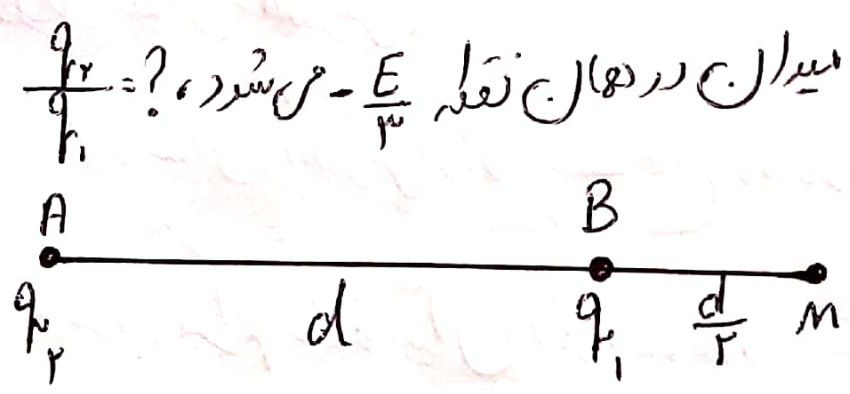 میدان در همان نقطه -E/۳ می‌شود، q۲/q۱ = ?
A B
q۲ d q۱ d/۲ M